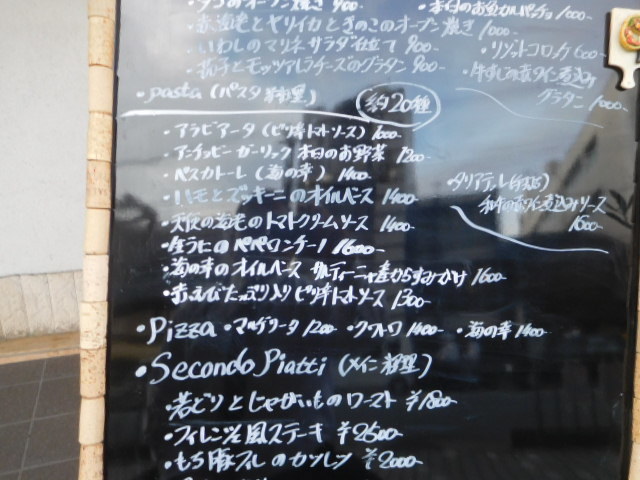 のオーブン焼き 900
本日のお魚カルパッチョ 1000
赤海老とヤリイカときのこのオーブン焼き 1000
いわしのマリネ サラダ仕立て 900
・リゾットコロッケ 600
茄子とモッツァレラチーズのグラタン 900
・牛すじの赤ワイン煮込み
グラタン 1000
・pasta (パスタ料理) 約20種
・アラビアータ (ピリ辛トマトソース) 1000
・アンチョビーガーリック 本日のお野菜 1200
・ペスカトーレ (海の幸) 1400
・ハモとズッキーニのオイルベース 1400
・天使の海老のトマトクリームソース 1400
・生うにのペペロンチーノ 1600
・海の幸のオイルベース サルディーニャ産からすみかけ 1600
・赤えびたっぷり入り ピリ辛トマトソース 1300
・タリアテッレ
和牛の赤ワイン煮込みソース
1600
・Pizza ・マルゲリータ 1200 ・クワトロ 1400 ・海の幸 1400
・Secondo Piatti (メイン料理)
・若どりとじゃがいものロースト ¥1800
・フィレンツェ風ステーキ ¥2500
・もち豚フィレのカツレツ ¥2000